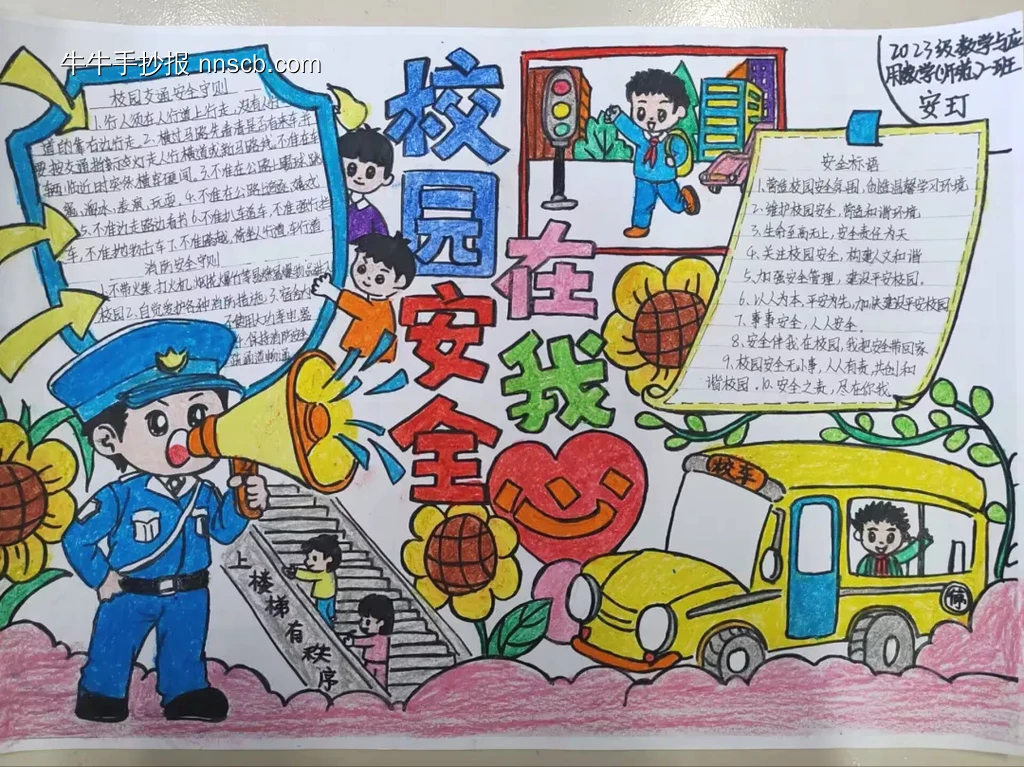 牛牛手抄报 nnscb.com
2023级数学与应
用数学(师范)一班
安玎
校园安全
在我心
校园交通安全守则
1.行人须在人行道上行走,没有人行
道的靠右边行走.2.横过马路先看清是否有来车并
要按交通指示或灯走人行横道或斑马线,不准在车
辆临近时突然横穿
5.不准边走路边看书 6.不准扒车追车,不准强行拦
车,不准抛物击车 7.不准
消防安全守则
1.不带火柴、打火机、烟花爆竹等易燃易爆物品进入
校园 2.自觉爱护各种消防措施,3.宿舍内
不使用大功率电器
4.保持消防安全
疏通道畅通
安全标语
1.营造校园安全氛围,创造温馨学习环境
2.维护校园安全,营造和谐环境
3.生命至高无上,安全责任为天
4.关注校园安全,构建人文和谐
5.加强安全管理,建设平安校园.
6.以人为本,平安为先,加快建设平安校园
7.事事安全,人人安全.
8.安全伴我在校园,我把安全带回家
9.校园安全无小事,人人有责,共创和
谐校园,10.安全之责,尽在你我
上楼梯有秩序
校车
停